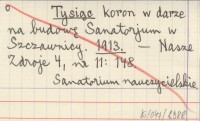 Tysiąc koron w darze
na budowę Sanatorjum w
Szczawnicy. 1913. — Nasze
Zdroje 4, nr 11: 148
Sanatorium nauczycielskie